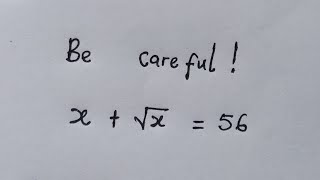 Be careful!
x + √x = 56